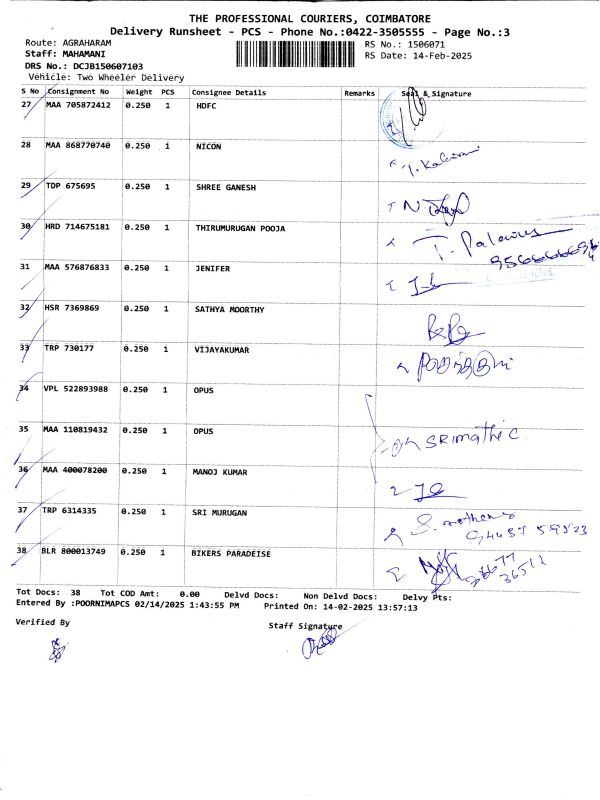 THE PROFESSIONAL COURIERS, COIMBATORE
Delivery Runsheet - PCS - Phone No.:0422-3505555 - Page No.:3
Route: AGRAHARAM RS No.: 1506071
Staff: MAHAMANI RS Date: 14-Feb-2025
DRS No.: DCJB150607103
Vehicle: Two Wheeler Delivery
S No Consignment No Weight PCS Consignee Details Remarks Seal & Signature
27 MAA 705872412 0.250 1 HDFC
28 MAA 868770740 0.250 1 NICON
29 TDP 675695 0.250 1 SHREE GANESH
30 HRD 714675181 0.250 1 THIRUMURUGAN POOJA
31 MAA 576876833 0.250 1 JENIFER
32 HSR 7369869 0.250 1 SATHYA MOORTHY
33 TRP 730177 0.250 1 VIJAYAKUMAR
34 VPL 522893988 0.250 1 OPUS
35 MAA 110819432 0.250 1 OPUS SRimathi C.
36 MAA 400078200 0.250 1 MANOJ KUMAR
37 TRP 6314335 0.250 1 SRI MURUGAN
38 BLR 800013749 0.250 1 BIKERS PARADEISE
Tot Docs: 38 Tot COD Amt: 0.00 Delvd Docs: Non Delvd Docs: Delvy Pts:
Entered By :POORNIMAPCS 02/14/2025 1:43:55 PM Printed On: 14-02-2025 13:57:13
Verified By Staff Signature